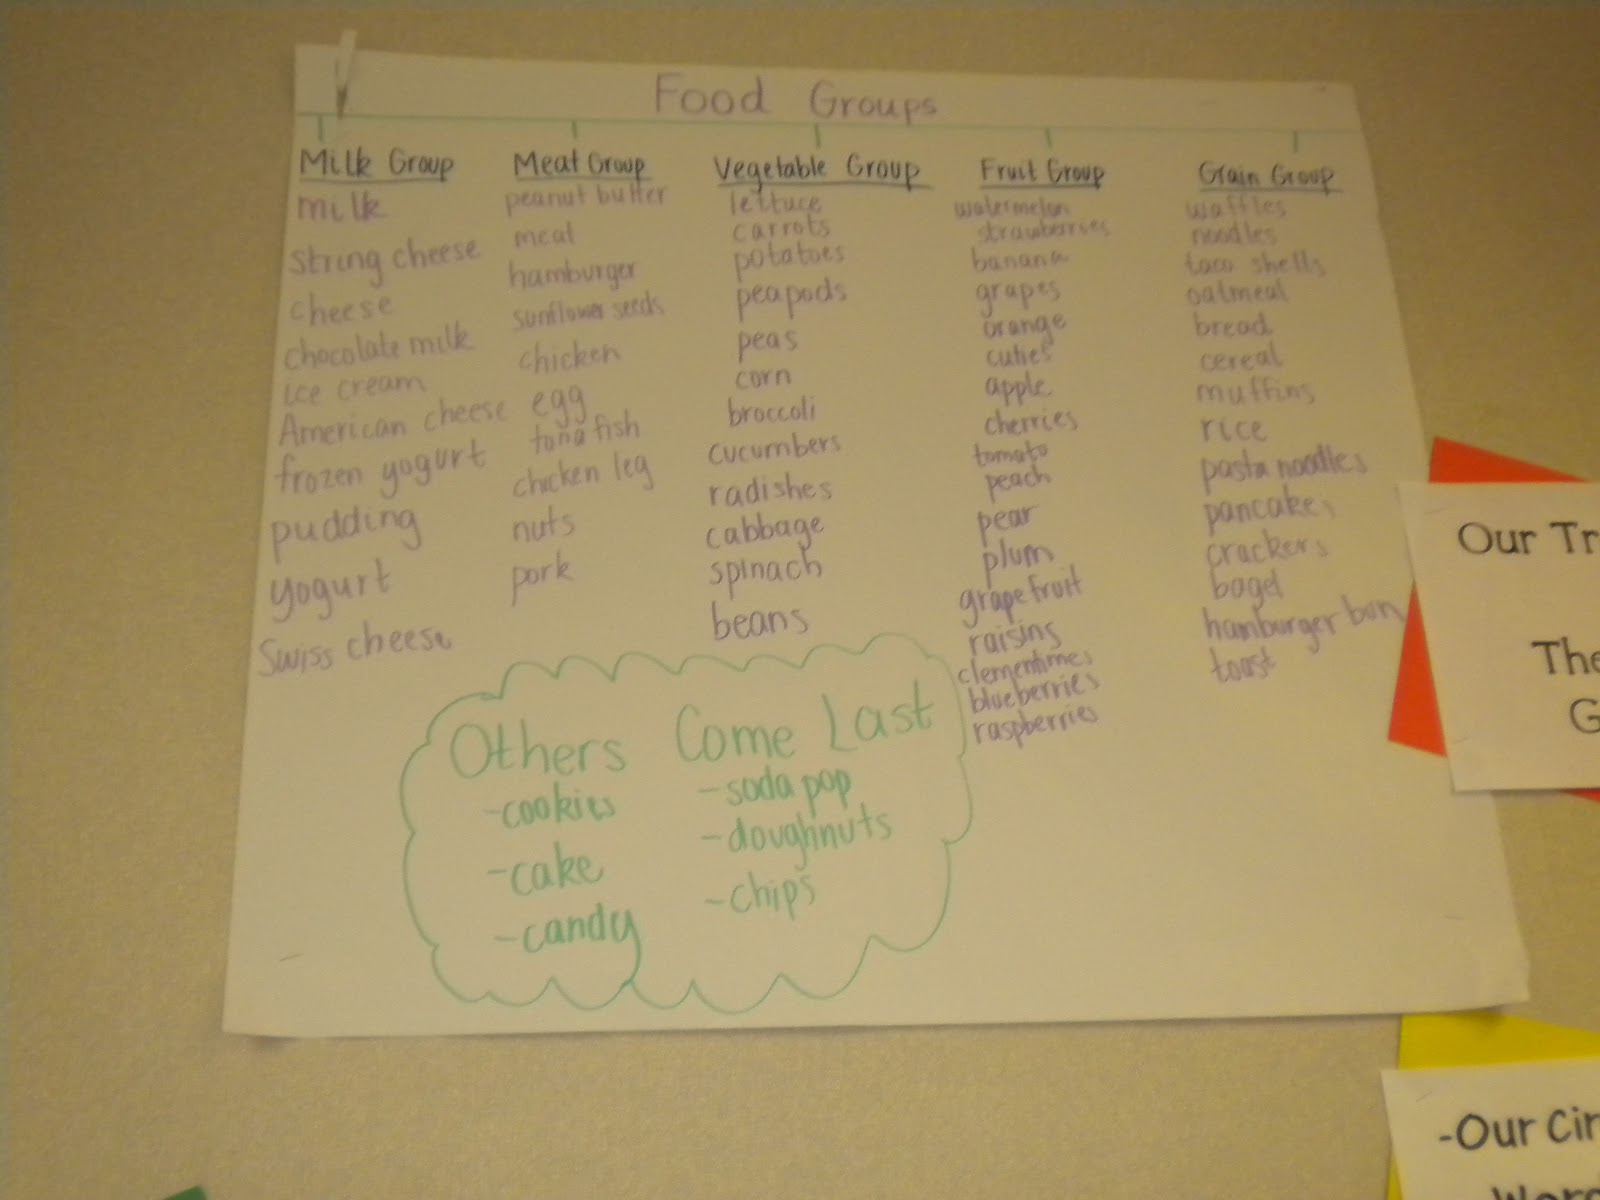 Food Groups
Milk Group
milk
string cheese
cheese
chocolate milk
ice cream
American cheese
frozen yogurt
pudding
yogurt
Swiss cheese
Meat Group
peanut butter
meat
hamburger
sunflower seeds
chicken
egg
tuna fish
chicken leg
nuts
pork
Vegetable Group
lettuce
carrots
potatoes
peapods
peas
corn
broccoli
cucumbers
radishes
cabbage
spinach
beans
Fruit Group
watermelon
strawberries
banana
grapes
orange
cuties
apple
cherries
tomato
peach
pear
plum
grapefruit
raisins
clementines
blueberries
raspberries
Grain Group
waffles
noodles
taco shells
oatmeal
bread
cereal
muffins
rice
pasta noodles
pancakes
crackers
bagel
hamburger bun
toast
Others Come Last
-cookies
-cake
-candy
-soda pop
-doughnuts
-chips
Our Tr
The
G
-Our Cir